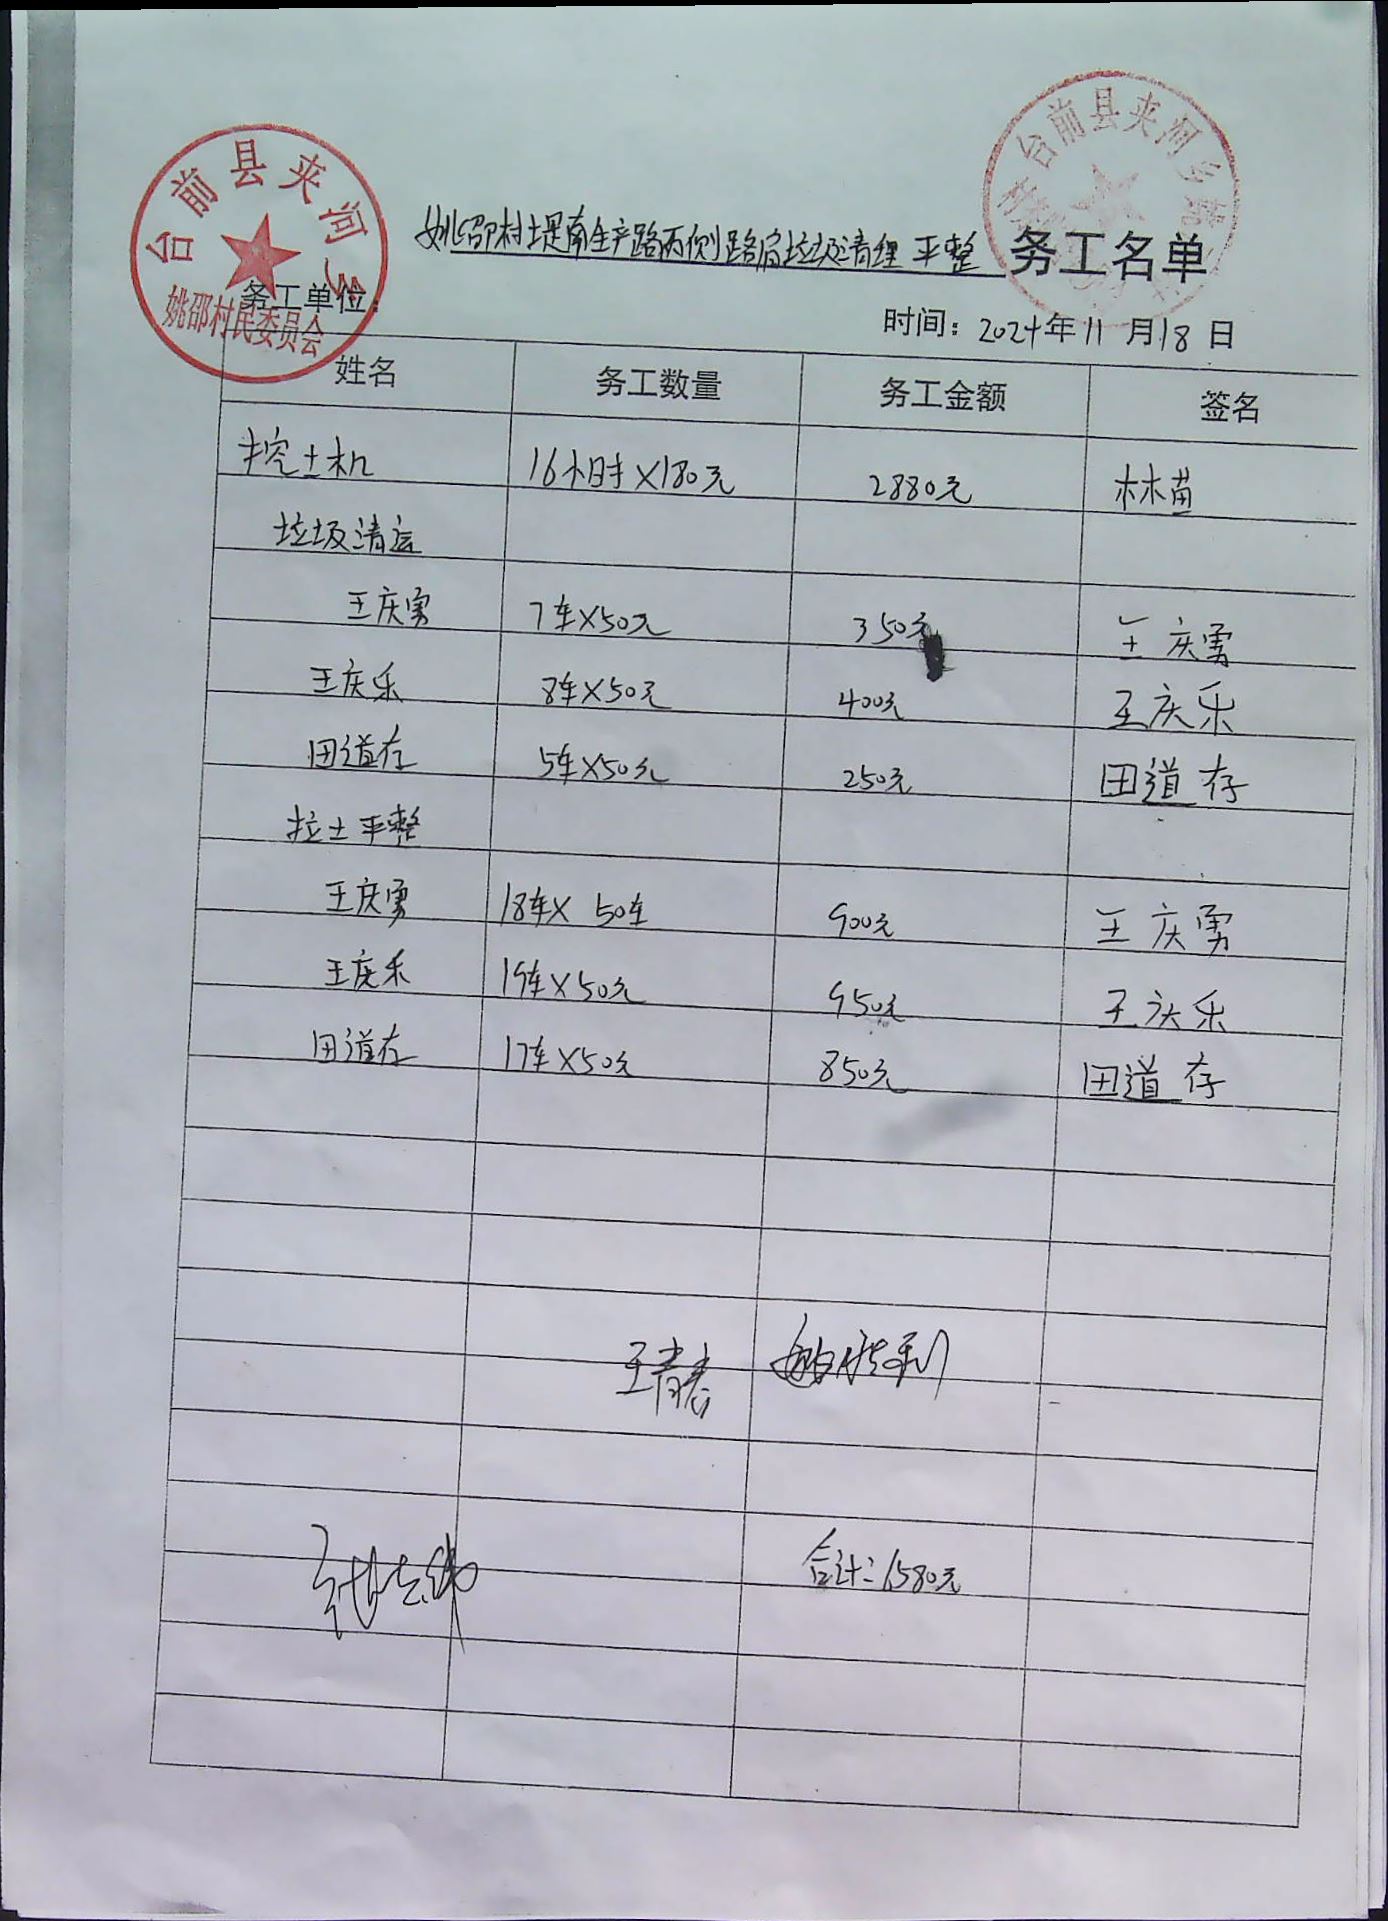 台前县夹河乡
姚邵村民委员会
台前县夹河乡姚
姚邵村堤南生产路两侧路肩垃圾清理平整 务工名单
务工单位：
时间：2024年11月18日
姓名 务工数量 务工金额 签名
挖土机 16小时×180元 2880元 林苗
垃圾清运
王庆勇 7车×50元 350元 王庆勇
王庆乐 8车×50元 400元 王庆乐
田道存 5车×50元 250元 田道存
拉土平整
王庆勇 18车× 50车 900元 王庆勇
王庆乐 19车×50元 950元 王庆乐
田道存 17车×50元 850元 田道存
合计：6580元